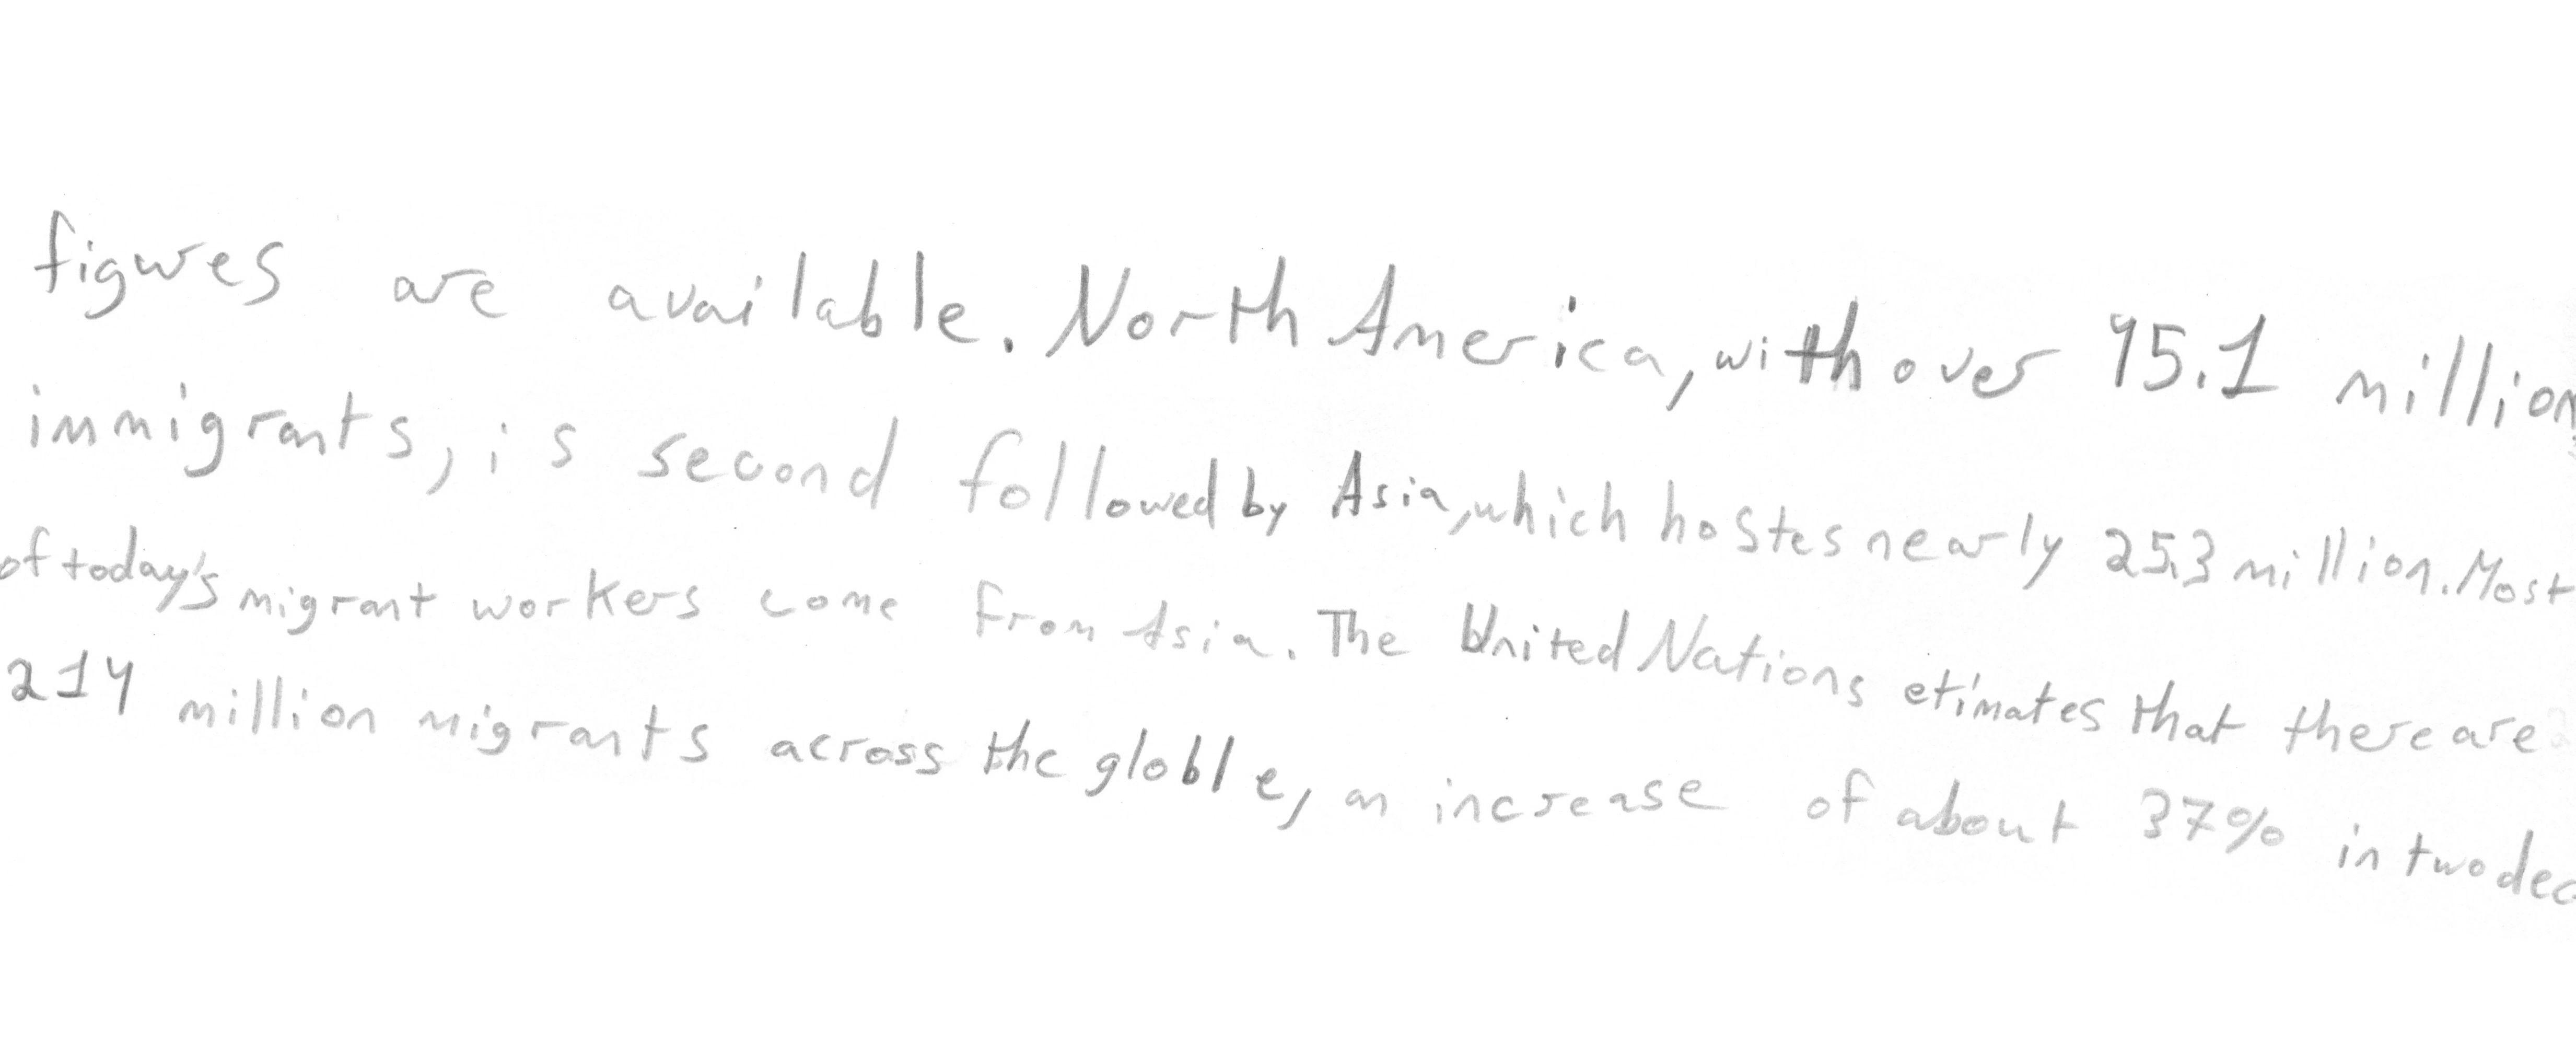 figures are available. North America, with over 45.1 million
immigrants, is second followed by Asia, which hostes nearly 25.3 million. Most
of today's migrant workers come from Asia. The United Nations etimates that there are
214 million migrants across the globle, an increase of about 37% in two dec